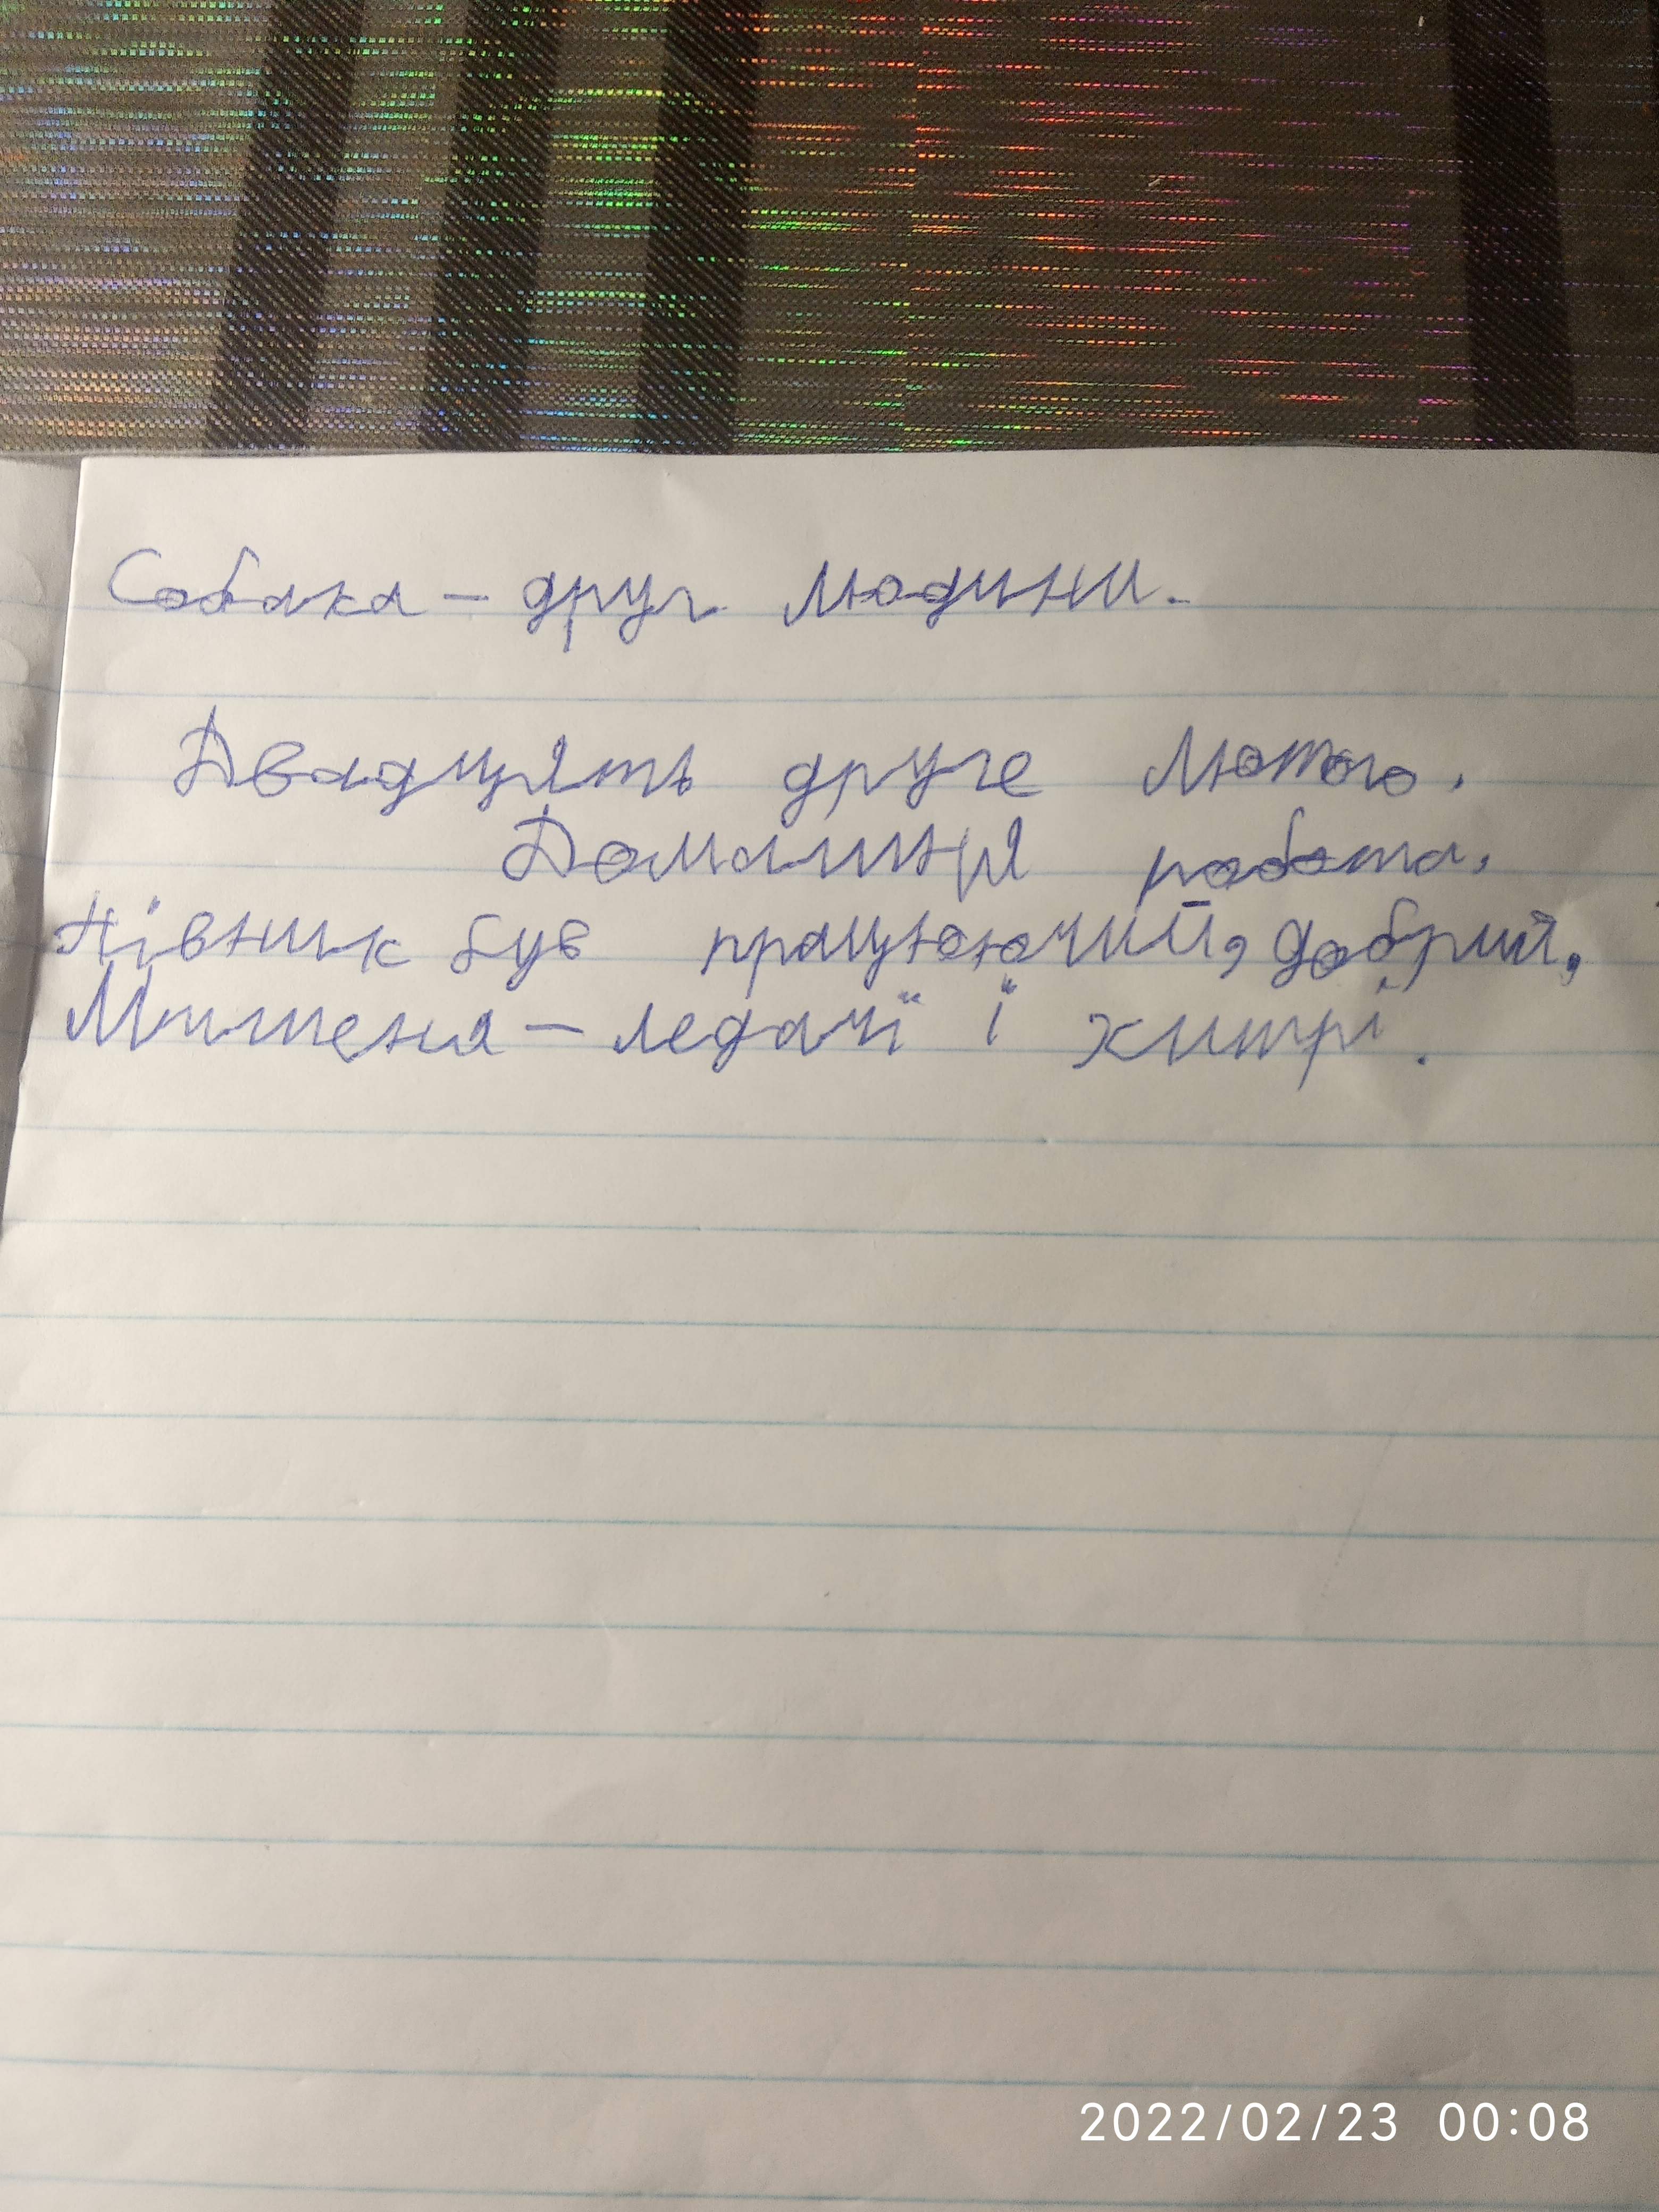 Собака – друг людини.
Двадцять друге лютого.
Домашня робота.
Півник був працюючий, добрий,
Мишеня – ледачї ї хитрі.
2022/02/23 00:08